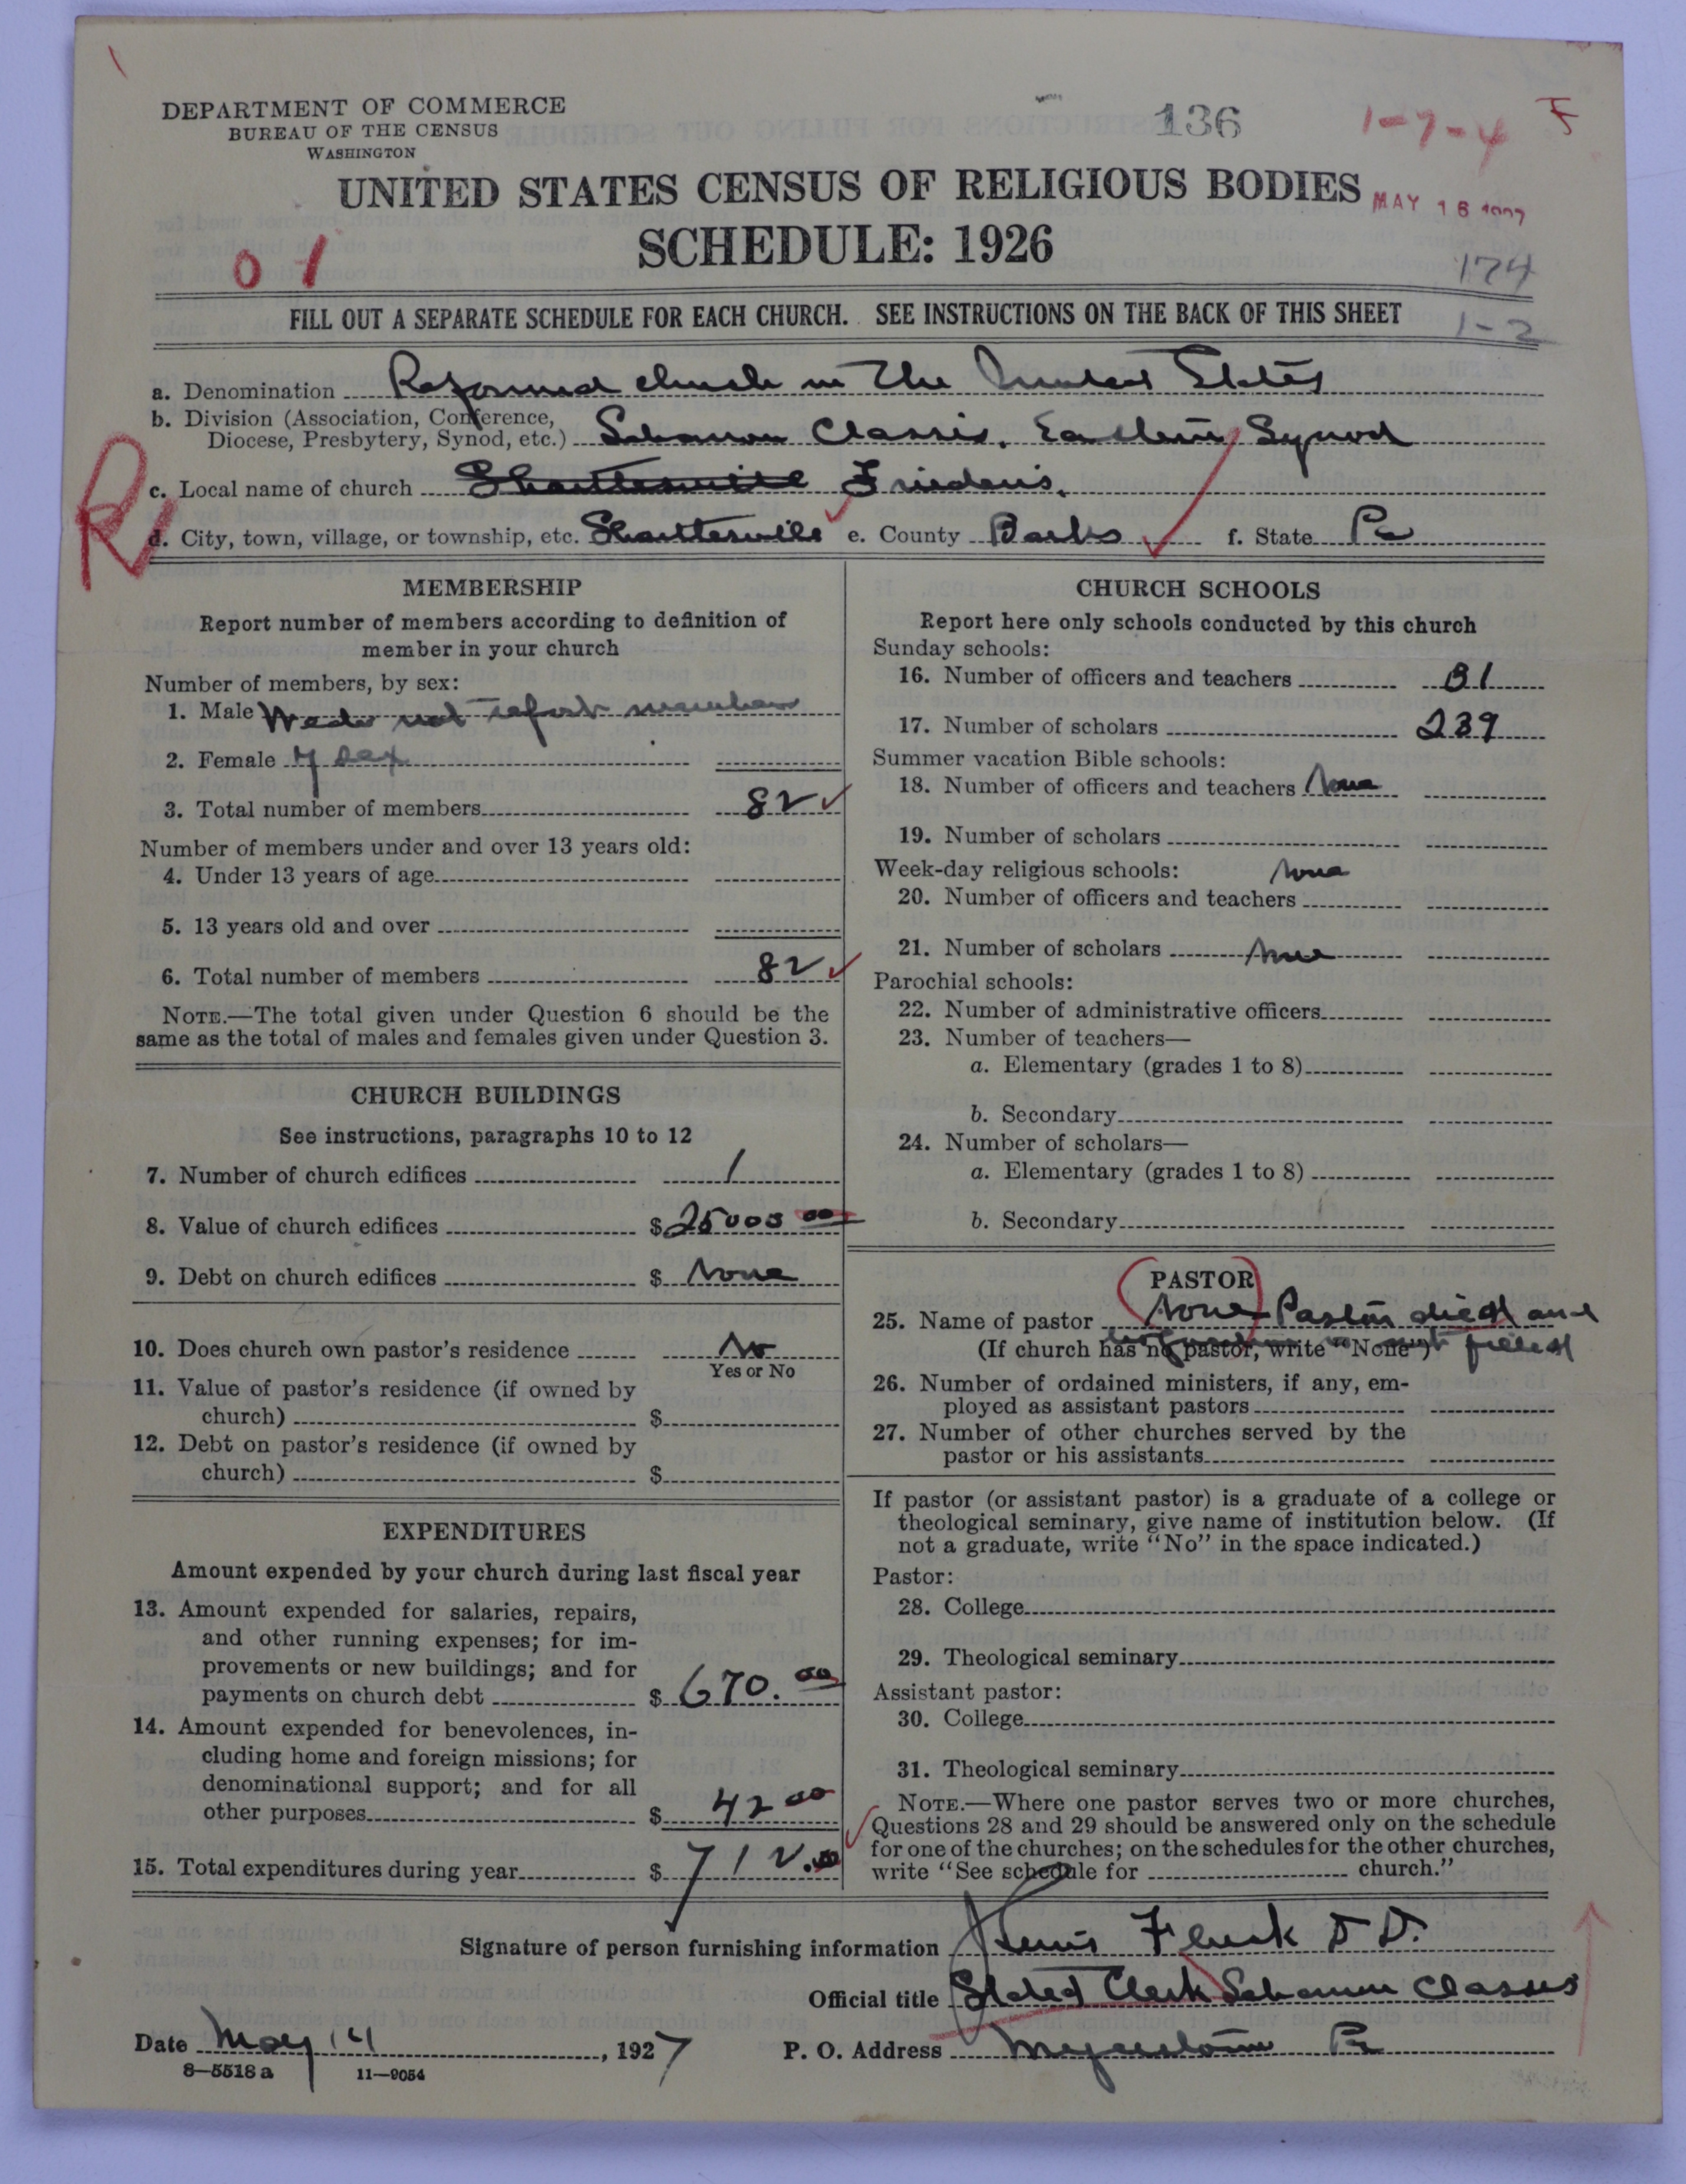 DEPARTMENT OF COMMERCE
BUREAU OF THE CENSUS
WASHINGTON
136
1-7-4
F
UNITED STATES CENSUS OF RELIGIOUS BODIES
MAY 16 1927
SCHEDULE: 1926
0 1
174
FILL OUT A SEPARATE SCHEDULE FOR EACH CHURCH. SEE INSTRUCTIONS ON THE BACK OF THIS SHEET
1-2
a. Denomination Reformed church in The United States
b. Division (Association, Conference,
Diocese, Presbytery, Synod, etc.) Lebanon Classis, Eastern Synod
R
c. Local name of church Shartlesville Friedens.
d. City, town, village, or township, etc. Shartlesville e. County Berks f. State Pa
MEMBERSHIP
Report number of members according to definition of
member in your church
Number of members, by sex:
1. Male We do not report members
2. Female by sex
3. Total number of members 82
Number of members under and over 13 years old:
4. Under 13 years of age
5. 13 years old and over
6. Total number of members 82
NOTE.—The total given under Question 6 should be the
same as the total of males and females given under Question 3.
CHURCH BUILDINGS
See instructions, paragraphs 10 to 12
7. Number of church edifices 1
8. Value of church edifices $ 25000 00
9. Debt on church edifices $ None
10. Does church own pastor's residence No
Yes or No
11. Value of pastor's residence (if owned by
church) $
12. Debt on pastor's residence (if owned by
church) $
EXPENDITURES
Amount expended by your church during last fiscal year
13. Amount expended for salaries, repairs,
and other running expenses; for im-
provements or new buildings; and for
payments on church debt $ 670.00
14. Amount expended for benevolences, in-
cluding home and foreign missions; for
denominational support; and for all
other purposes $ 42 00
15. Total expenditures during year $ 712.00
CHURCH SCHOOLS
Report here only schools conducted by this church
Sunday schools:
16. Number of officers and teachers 31
17. Number of scholars 239
Summer vacation Bible schools:
18. Number of officers and teachers None
19. Number of scholars
Week-day religious schools: None
20. Number of officers and teachers
21. Number of scholars None
Parochial schools:
22. Number of administrative officers
23. Number of teachers—
a. Elementary (grades 1 to 8)
b. Secondary
24. Number of scholars—
a. Elementary (grades 1 to 8)
b. Secondary
PASTOR
25. Name of pastor None Pastor died and
(If church has no pastor, write "None") not filled
26. Number of ordained ministers, if any, em-
ployed as assistant pastors
27. Number of other churches served by the
pastor or his assistants
If pastor (or assistant pastor) is a graduate of a college or
theological seminary, give name of institution below. (If
not a graduate, write "No" in the space indicated.)
Pastor:
28. College
29. Theological seminary
Assistant pastor:
30. College
31. Theological seminary
NOTE.—Where one pastor serves two or more churches,
Questions 28 and 29 should be answered only on the schedule
for one of the churches; on the schedules for the other churches,
write "See schedule for church."
Signature of person furnishing information D D.
Official title Stated Clerk Lebanon Classis
Date May 14, 1927 P. O. Address Myerstown Pa
8—5518 a 11—9054